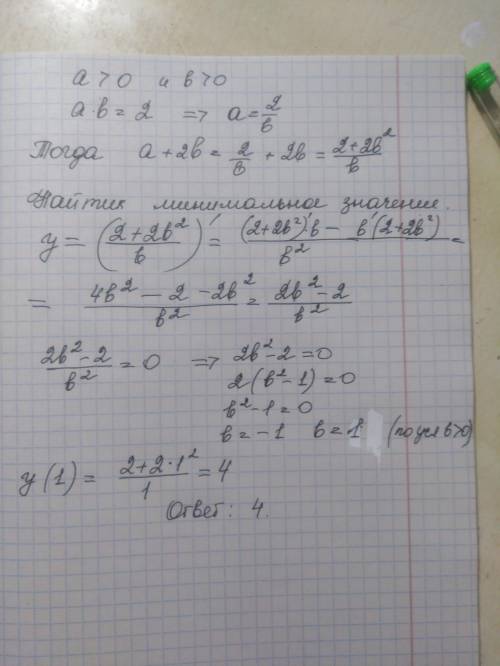 a > 0 и b > 0
a · b = 2 => a = 2/b
Тогда a + 2b = 2/b + 2b = (2+2b²)/b
Найти минимальное значение.
y = ((2+2b²)/b)' = ((2+2b²)'·b − b'(2+2b²))/b² =
= (4b² − 2 − 2b²)/b² = (2b² − 2)/b²
(2b² − 2)/b² = 0 => 2b² − 2 = 0
2(b² − 1) = 0
b² − 1 = 0
b = −1 b = 1 (по усл b>0)
y(1) = (2+2·1²)/1 = 4
Ответ: 4.